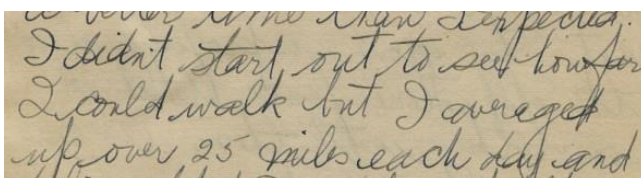 a better time than I expected.
I didn't start out to see how far
I could walk but I averaged
up over 25 miles each day and